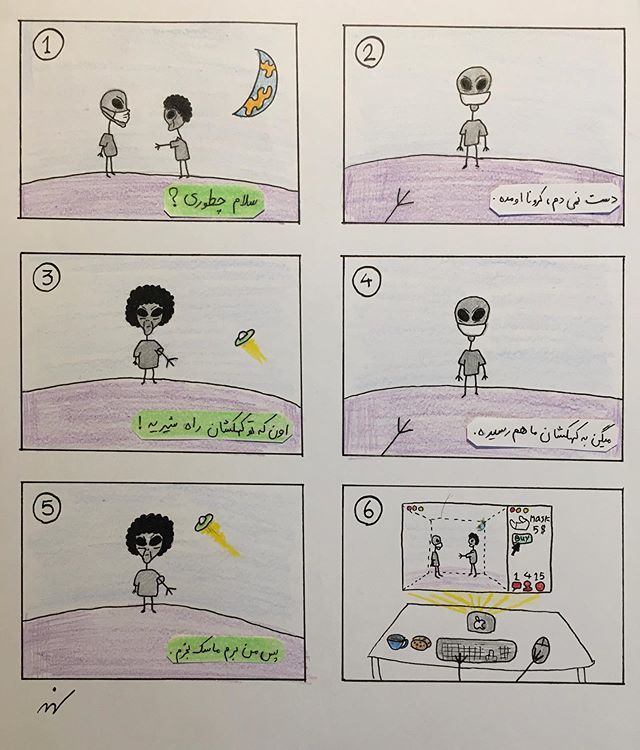 1
سلام چطوری ؟
2
دست نمی دم، کرونا اومده.
3
اون که تو کهکشان راه شیریه !
4
میگن به کهکشان ما هم رسیده.
5
پس من برم ماسک بخرم.
6
mask
5$
BUY
1 4 15